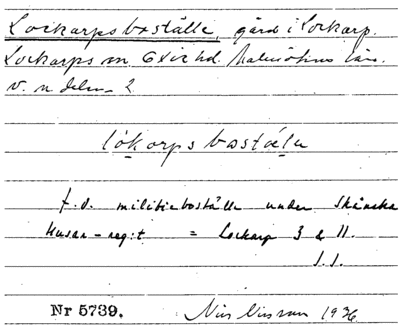 Lockarpsbostället, gård i Lockarp.
Lockarps sn Oxie hd. Malmöhus län.
v. n delen 2
lökorps bostælu
f.d. militieboställe under Skånska
Husar-reg:t = Lockarp 3 & 11.
J.J.
Nr 5739. Nils Nilsson 1936